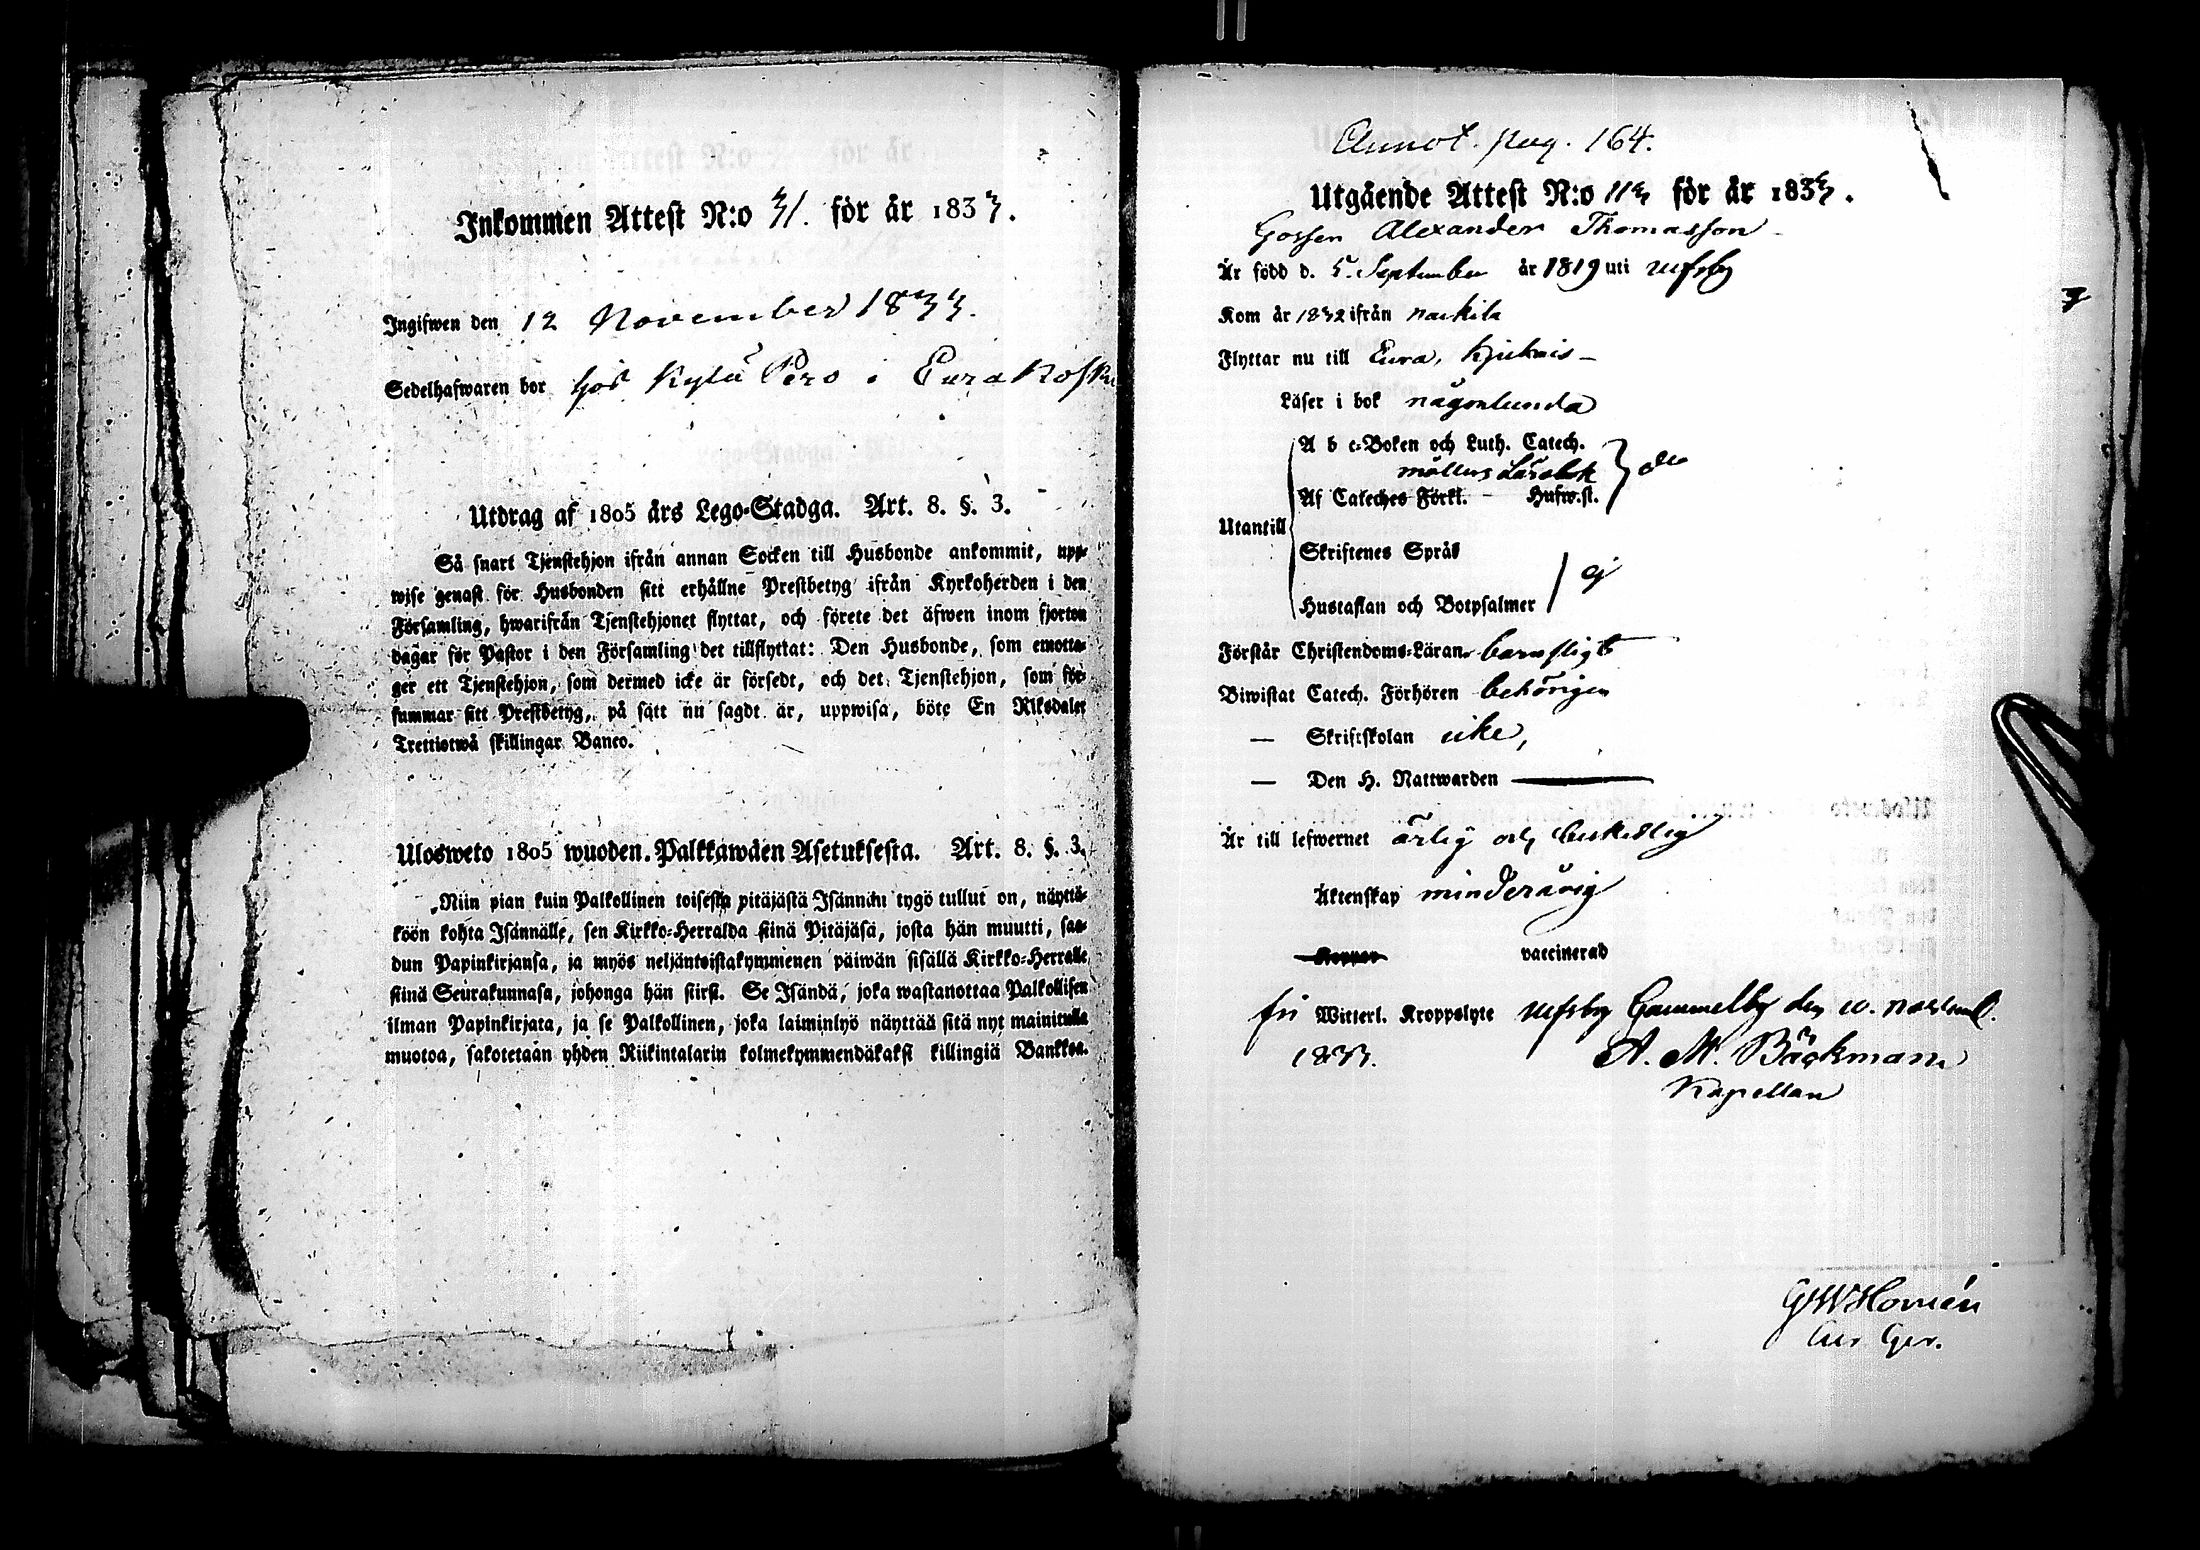 Inkommen Attest N:o 31. för år 1833.
Ingifwen den 12 November 1833.
Sedelhafwaren bor hos Kylä Pero i Eurakosk
Utdrag af 1805 års Lego-Stadga. Art. 8. §. 3.
Så snart Tjenstehjon ifrån annan Socken till Husbonde ankommit, upp-
wise genast för Husbonden sitt erhållne Prestbetyg ifrån Kyrkoherden i den
Församling, hwarifrån Tjenstehjonet flyttat, och förete det äfwen inom fjorton
dagar för Pastor i den Församling det tillflyttat: Den Husbonde, som emotta-
ger ett Tjenstehjon, som dermed icke är försedt, och det Tjenstehjon, som för-
summar sitt Prestbetyg, på sätt nu sagdt är, uppwisa, böte En Riksdaler
Trettiotwå skillingar Banco.
Ulosweto 1805 wuoden Palkkawäen Asetuksesta. Art. 8. §. 3.
Niin pian kuin Palkollinen toisesta pitäjästä Isännän tygö tullut on, näyttä-
köön kohta Isännälle, sen Kirkko-Herralda siinä Pitäjäsä, josta hän muutti, saa-
dun Papinkirjansa, ja myös neljäntoistakymmenen päiwän sisällä Kirkko-Herralle
siinä Seurakunnasa, johonga hän siirsi. Se Isändä, joka wastanottaa Palkollisen
ilman Papinkirjata, ja se Palkollinen, joka laiminlyö näyttää sitä nyt mainitulla
muotoa, sakotetaan yhden Riikintalarin kolmekymmendäkaksi killingiä Bankkoa.
Annot. pag. 164.
Utgående Attest N:o 113 för år 1833.
Gossen Alexander Thomasson
Är född d. 5. September år 1819 uti Ulfsby
Kom år 1832 ifrån Nackila
Flyttar nu till Eura,
Läser i bok någorlunda
A b c-Boken och Luth. Catech.
Möllers Lärobok
Af Cateches Förkl. Hufw.st.
Utantill
Skriftenes Språk
ej
Hustaflan och Botpsalmer
Förstår Christendoms-Läran barnsligt
Biwistat Catech. Förhören behörigen
— Skriftskolan icke,
— Den H. Nattwarden —
Är till lefwernet ärlig och beskedlig
Äktenskap minderårig
Koppor vaccinerad
fri Witterl. Kroppslyte Ulfsby Gammelby den 10. Novemb.
1833. A. M. Bäckman
Kapellan
Homén